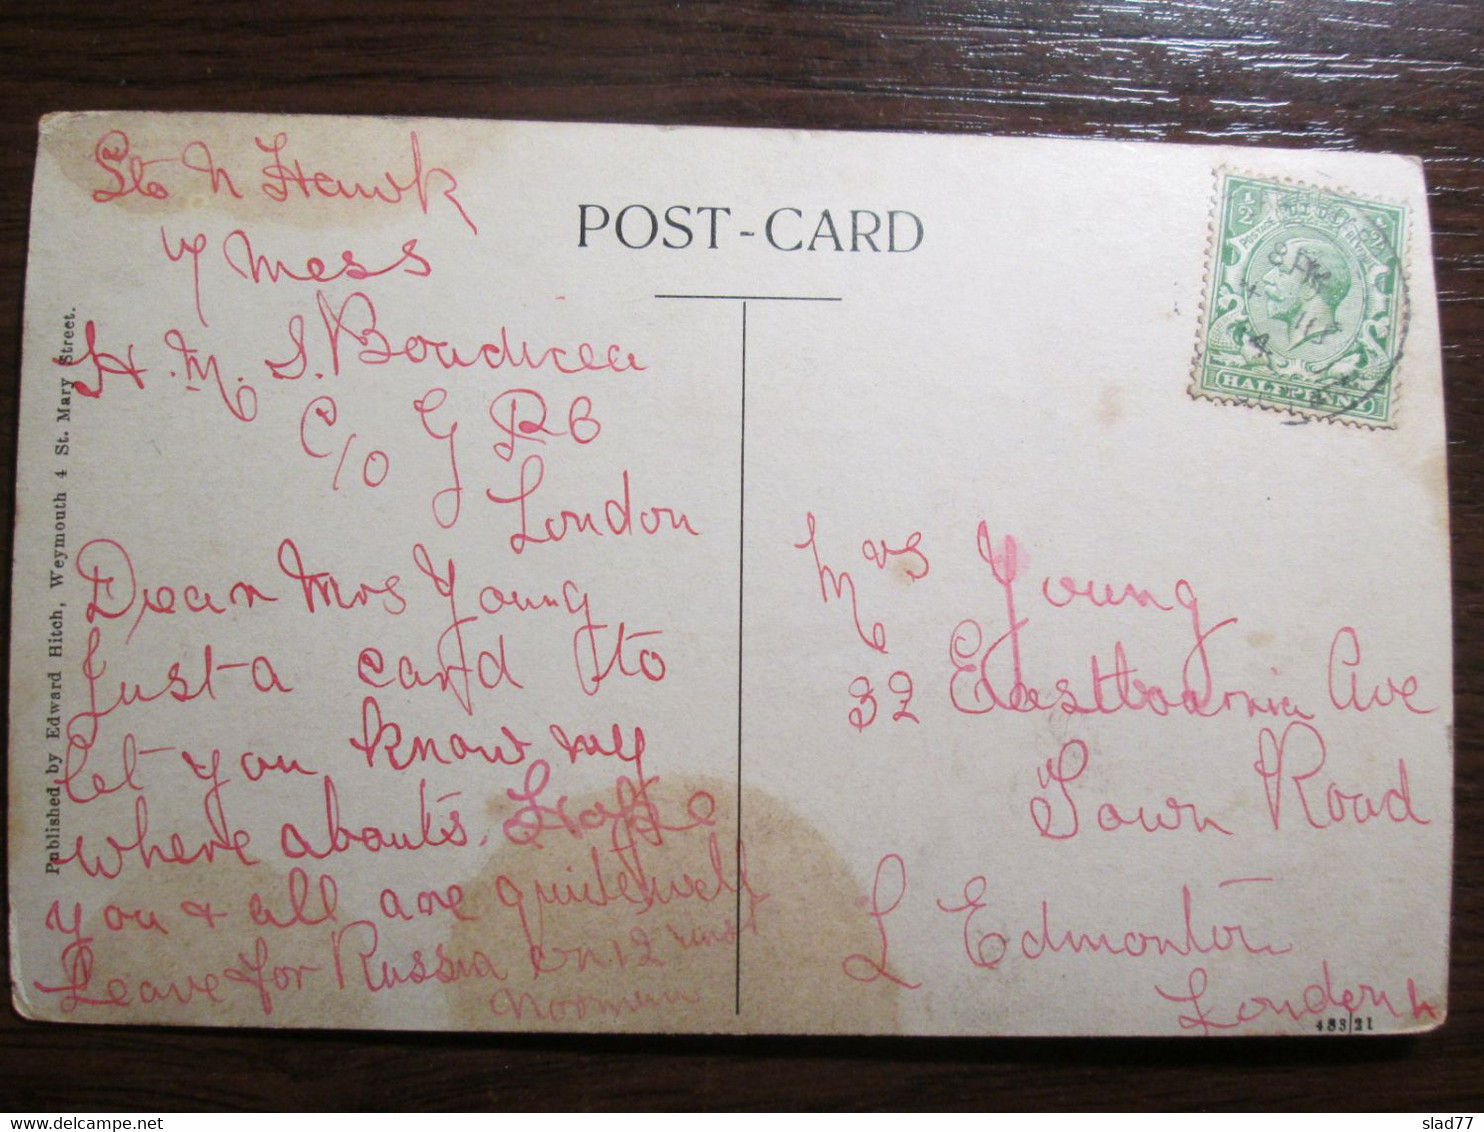 Sto N Hawk
7 Mess
H.M.S. Boadicea
c/o G P O
London
Dear Mrs Young
Just a card to
let you know my
where abouts. Hope
you & all are quite well
Leave for Russia on 12 inst
Norman
Published by Edward Hitch, Weymouth 4 St. Mary Street.
POST-CARD
POSTAGE
REVENUE
½
HALFPENNY
Mrs Young
32 Eastbournia Ave
Town Road
L Edmonton
London N
483/21
slad77